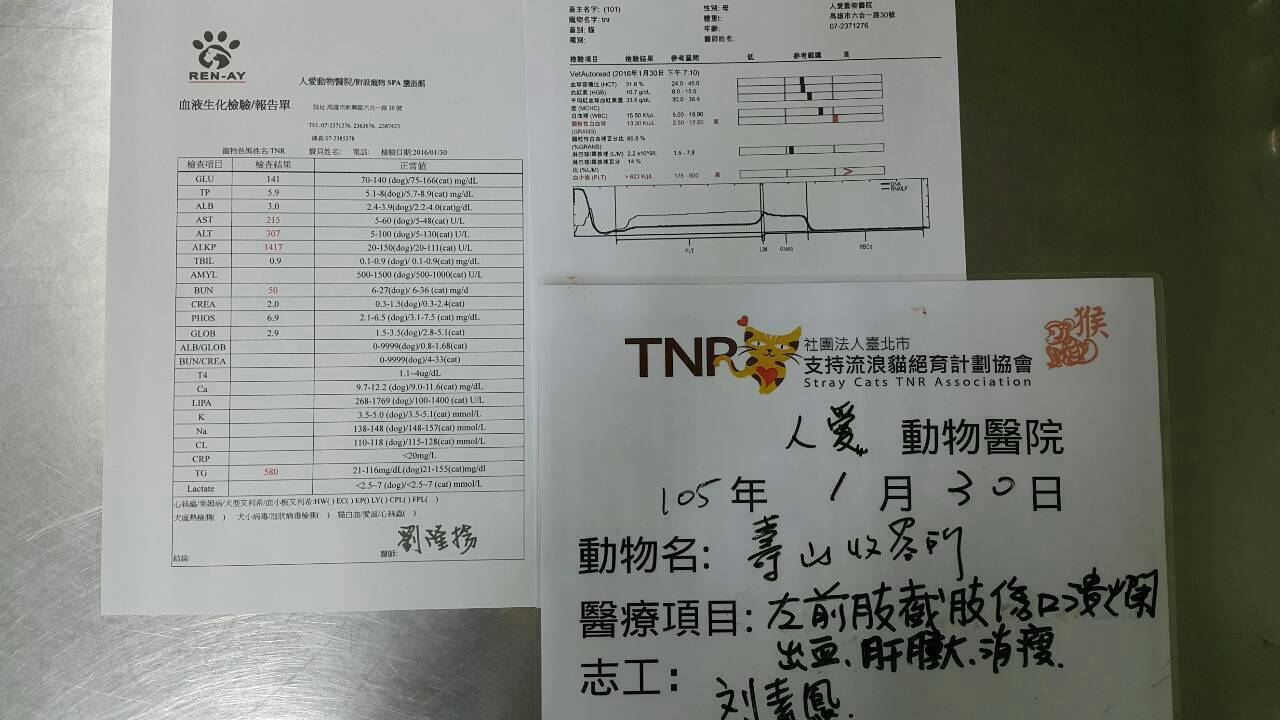 REN-AY
人愛動物醫院/附設寵物 SPA 鹽浴館
血液生化檢驗/報告單
院址:高雄市新興區六合一路 30 號
TEL:07-2371276. 2363676. 2387423
傳真:07-2385378
寵物爸媽姓名:TNR 寶貝姓名: 電話: 檢驗日期:2016/01/30
檢查項目 檢查結果 正常值
GLU 141 70-140 (dog)/75-166(cat) mg/dL
TP 5.9 5.1-8(dog)/5.7-8.9(cat) mg/dL
ALB 3.0 2.4-3.9(dog)/2.2-4.0(cat)g/dL
AST 215 5-60 (dog)/5-48(cat) U/L
ALT 307 5-100 (dog)/5-130(cat) U/L
ALKP 1417 20-150(dog)/20-111(cat) U/L
TBIL 0.9 0.1-0.9 (dog)/ 0.1-0.9(cat) mg/dL
AMYL 500-1500 (dog)/500-1000(cat) U/L
BUN 50 6-27(dog)/ 6-36 (cat) mg/d
CREA 2.0 0.3-1.5(dog)/0.3-2.4(cat)
PHOS 6.9 2.1-6.5 (dog)/3.1-7.5 (cat) mg/dL
GLOB 2.9 1.5-3.5(dog)/2.8-5.1(cat)
ALB/GLOB 0-9999(dog)/0.8-1.68(cat)
BUN/CREA 0-9999/4-33(cat)
T4 1.1~4ug/dL
Ca 9.7-12.2 (dog)/9.0-11.6(cat) mg/dL
LIPA 268-1769 (dog)/100-1400 (cat) U/L
K 3.5-5.0 (dog)/3.5-5.1(cat) mmol/L
Na 138-148 (dog)/148-157(cat) mmol/L
CL 110-118 (dog)/115-128(cat) mmol/L
CRP <20mg/L
TG 580 21-116mg/dL(dog)21-155(cat)mg/dl
Lactate <2.5~7 (dog)/<2.5~7 (cat) mmol/L
心絲蟲/萊姆病/犬型艾利希/血小板艾利希:HW( ) EC( ) EP( ) LY( ) CPL( ) FPL( )
犬瘟熱檢測( ) 犬小病毒/冠狀病毒檢測( ) 貓白血/愛滋/心絲蟲( )
結論: 醫師: 劉隆揚
畜主名字: (101) 性別: 母 人愛動物醫院
寵物名字: tnr 體重: 高雄市六合一路30號
畜別: 貓 年齡: 07-2371276
種別: 醫師姓名:
檢驗項目 檢驗結果 參考量間 低 參考範圍 高
VetAutoread (2016年1月30日 下午 7:10)
血球容積比 (HCT) 31.8 % 24.0 - 45.0
血紅素 (HGB) 10.7 g/dL 8.0 - 15.0
平均紅血球血紅素濃 33.6 g/dL 30.0 - 36.9
度 (MCHC)
白血球 (WBC) 15.50 K/µL 5.00 - 18.90
顆粒性白血球 13.30 K/µL 2.50 - 12.50 高
(GRANS)
顆粒性白血球百分比 85.8 %
(%GRANS)
淋巴球/單核球 (L/M) 2.2 x10^9/L 1.5 - 7.8
淋巴球/單核球百分 14 %
比 (%L/M)
血小板 (PLT) > 623 K/µL 175 - 500 高
DNA
RNA/LP
PLT L/M Grans RBCs
猴
TNR
社團法人臺北市
支持流浪貓絕育計劃協會
Stray Cats TNR Association
人愛 動物醫院
105 年 1 月 30 日
動物名: 壽山收容所
醫療項目: 左前肢截肢傷口潰爛
出血、肝腫大、消瘦.
志工: 刘素鳳.